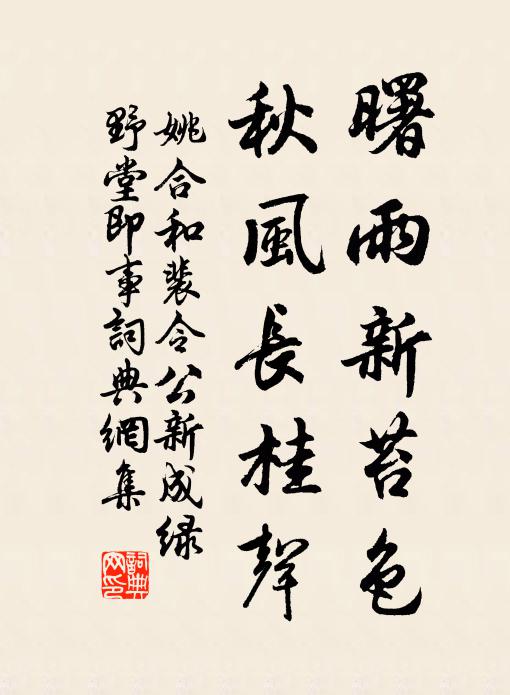 曙雨新苔色
秋風長桂聲
姚合和裴令公新成绿
野堂即事詞典網集
詞典
网印